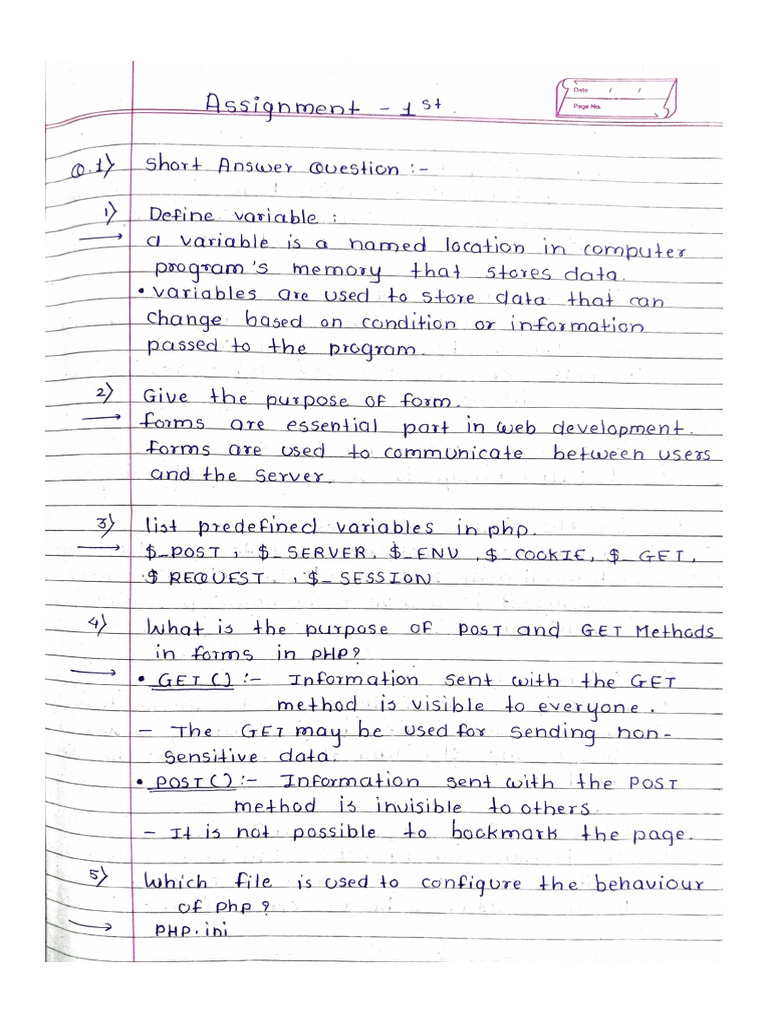 Assignment - 1st.
Date / /
Page No.
Q.1) Short Answer Question :-
1) Define variable :
→ a variable is a named location in computer
program's memory that stores data.
• variables are used to store data that can
change based on condition or information
passed to the program.
2) Give the purpose of form.
→ forms are essential part in web development.
forms are used to communicate between users
and the server.
3) list predefined variables in php.
→ $_POST, $_SERVER, $_ENV, $_COOKIE, $_GET,
$ REQUEST, $_SESSION.
4) What is the purpose of POST and GET Methods
in forms in PHP?
→ • GET() :- Information sent with the GET
method is visible to everyone.
- The GET may be used for sending non-
sensitive data.
• POST() :- Information sent with the POST
method is invisible to others.
- It is not possible to bookmark the page.
5) Which file is used to configure the behaviour
of php?
→ PHP.ini